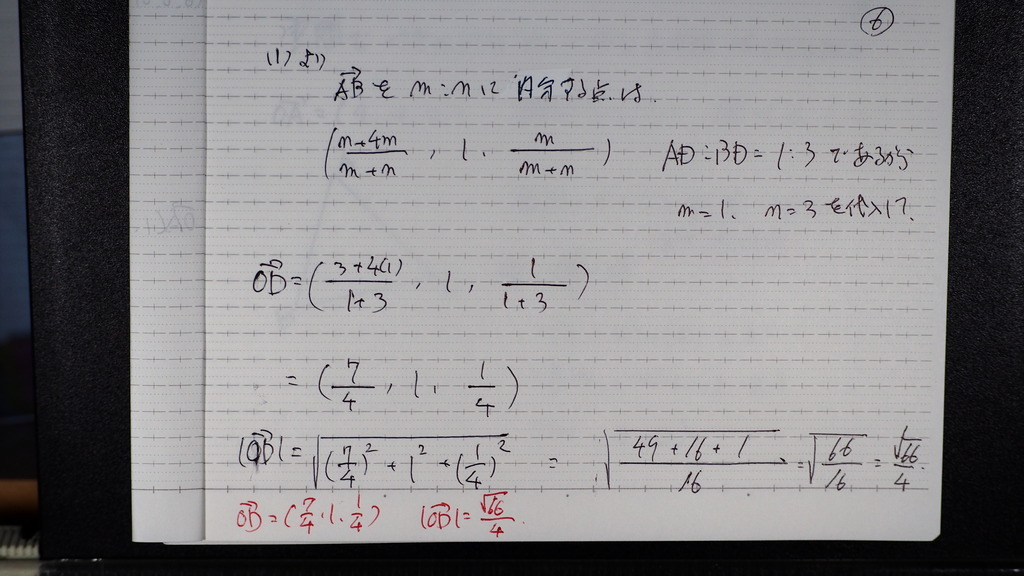 ⑥
(1)より
$\overrightarrow{AB}$を m:nに内分する点は.
$\left(\frac{n+4m}{m+n}, 1, \frac{m}{m+n}\right)$ AD:BD=1:3であるから
m=1. n=3を代入して.
$\overrightarrow{OD}=\left(\frac{3+4(1)}{1+3}, 1, \frac{1}{1+3}\right)$
$=\left(\frac{7}{4}, 1, \frac{1}{4}\right)$
$|\overrightarrow{OD}|=\sqrt{\left(\frac{7}{4}\right)^2+1^2+\left(\frac{1}{4}\right)^2}=\sqrt{\frac{49+16+1}{16}}=\sqrt{\frac{66}{16}}=\frac{\sqrt{66}}{4}.$
$\overrightarrow{OD}=\left(\frac{7}{4}, 1, \frac{1}{4}\right)$ $|\overrightarrow{OD}|=\frac{\sqrt{66}}{4}.$